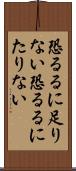 恐るるに足り
ない恐るるに
たりない